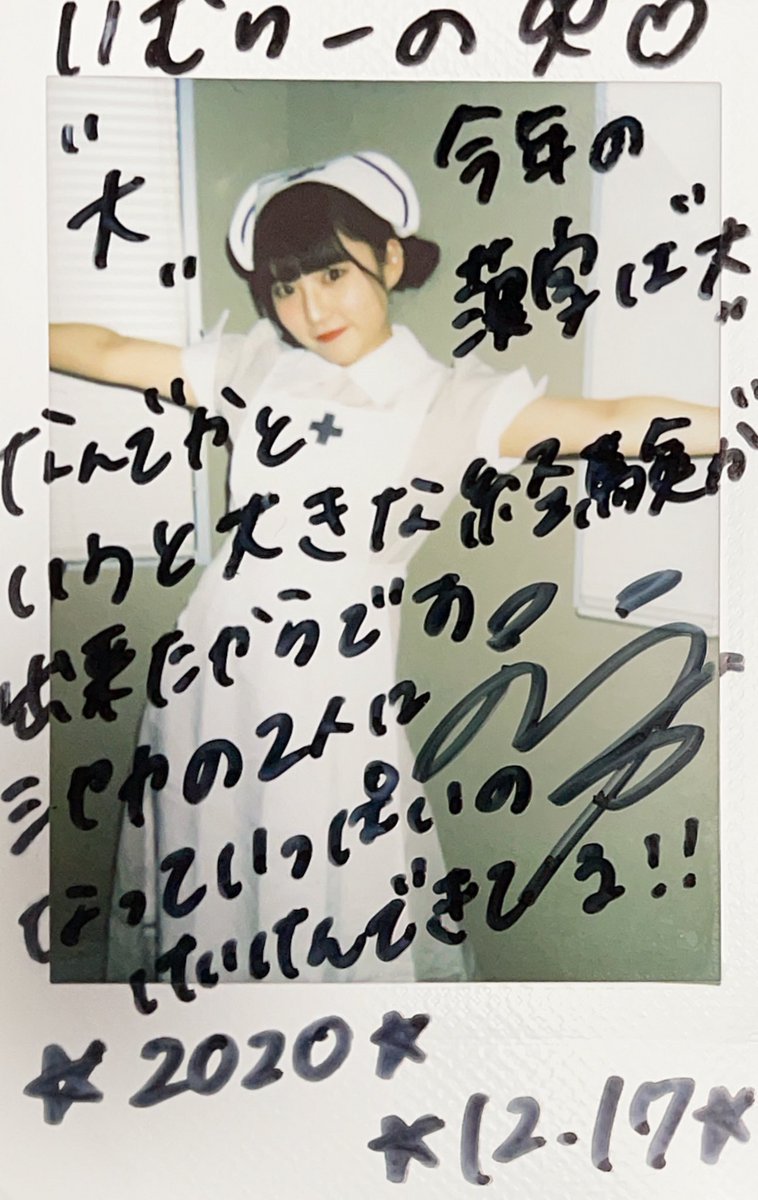 いむりーの ♡
"大"
今年の
漢字は"大"
なんでかと
いうと大きな経験が
出来たからです
の2人に
なっていっぱいの
けいけんできてる!!
★2020★
★12.17★